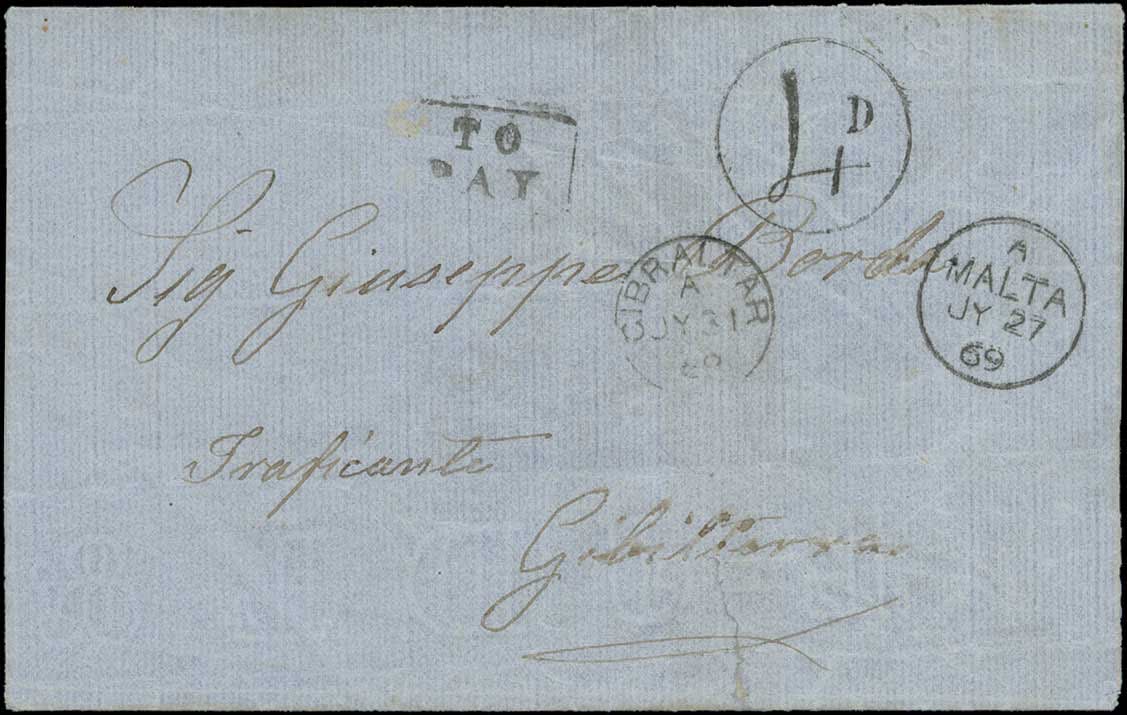 TO
PAY
4D
Sig Giuseppe
GIBRALTAR
A
JY 31
69
A
MALTA
JY 27
69
Traficante
Gibilterra